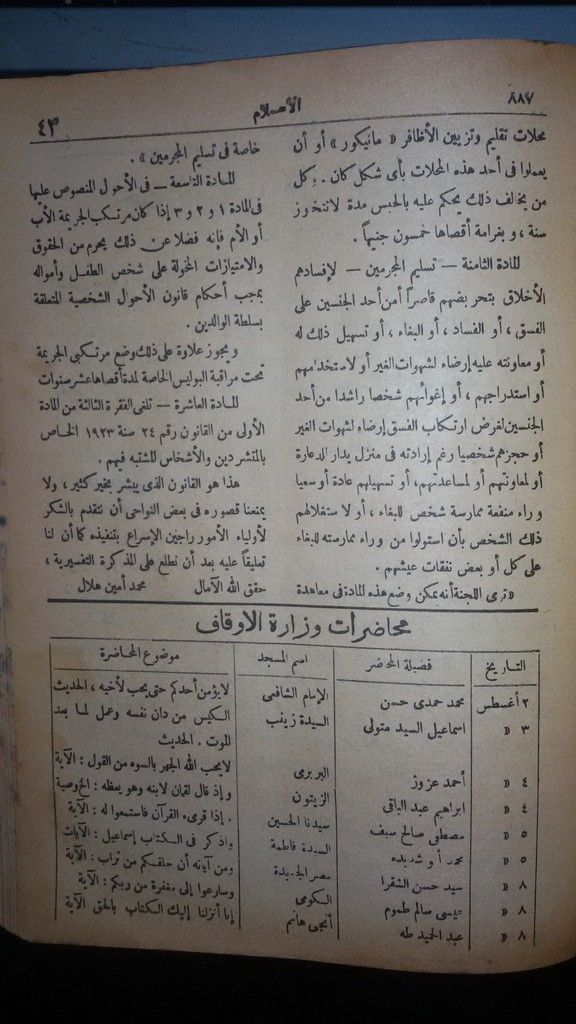 ٨٨٧
الاسلام
٤٣
محلات تقليم وتزيين الأظافر « مانيكور » أو أن
يعملوا فى أحد هذه المحلات بأى شكل كان . وكل
من يخالف ذلك يحكم عليه بالحبس مدة لا تتجاوز
سنة ، وبغرامة أقصاها خمسون جنيهاً .
المادة الثامنة — تسليم المجرمين — لإفسادهم
الأخلاق بتحريضهم قاصراً أمن أحد الجنسين على
الفسق ، أو الفساد ، أو البغاء ، أو تسهيل ذلك له
أو معاونته عليه إرضاء لشهوات الغير أو لاستخدامهم
أو استدراجهم ، أو إغوائهم شخصا راشدا من أحد
الجنسين لغرض ارتكاب الفسق إرضاء لشهوات الغير
أو حجزهم شخصيا رغم إرادته فى منزل يدار للدعارة
أو لمعاونتهم أو لمساعدتهم، أو تسهيلهم عادة أو سعيا
وراء منفعة ممارسة شخص للبغاء ، أو لاستغلالهم
ذلك الشخص بأن استولوا من وراء ممارسته للبغاء
على كل أو بعض نفقات عيشهم .
« ترى اللجنة أنه يمكن وضع هذه المادة فى معاهدة
خاصة فى تسليم المجرمين » .
المادة التاسعة — فى الأحول المنصوص عليها
فى المادة ١ و ٢ و ٣ إذا كان مرتكب الجريمة الأب
أو الأم فإنه فضلا عن ذلك يحرم من الحقوق
والامتيازات المخولة على شخص الطفل وأمواله
بموجب أحكام قانون الأحوال الشخصية المتعلقة
بسلطة الوالدين .
ويجوز علاوة على ذلك وضع مرتكبى الجريمة
تحت مراقبة البوليس الخاصة لمدة أقصاها عشر سنوات
المادة العاشرة — تلغى الفقرة الثالثة من المادة
الأولى من القانون رقم ٢٤ سنة ١٩٢٣ الخاص
بالمتشردين والأشخاص المشتبه فيهم .
هذا هو القانون الذى يبشر بخير كثير ، ولا
يمنعنا قصوره فى بعض النواحى أن نتقدم بالشكر
لأولياء الأمور راجين الإسراع بتنفيذه كما أن لنا
تعليقاً عليه بعد أن نطلع على المذكرة التفسيرية ،
حقق الله الآمال محمد أمين هلال
محاضرات وزارة الاوقاف
التاريخ فضيلة المحاضر اسم المسجد موضوع المحاضرة
٢ أغسطس محمد حمدى حسن الإمام الشافعى لا يؤمن أحدكم حتى يحب لأخيه ، الحديث
٣ « اسماعيل السيد متولى السيدة زينب الكيس من دان نفسه وعمل لما بعد
الموت . الحديث
٤ « أحمد عزوز البربرى لا يحب الله الجهر بالسوء من القول : الآية
٤ « ابراهيم عبد الباقى الزيتون وإذ قال لقمان لابنه وهو يعظه :
٥ « مصطفى صالح سيف سيدنا الحسين إذا قرىء القرآن فاستمعوا له : الآية
٥ « محمد السيدة فاطمة واذكر فى الكتاب إسماعيل : الآيات
٨ « سيد حسن الشقرا مصر الجديدة ومن آياته أن خلقكم من تراب : الآية
٨ « عيسى سالم طموم الكومى وسارعوا إلى مغفرة من ربكم : الآية
٨ « عبد الحميد طه أنجى هانم إنا أنزلنا إليك الكتاب بالحق الآية